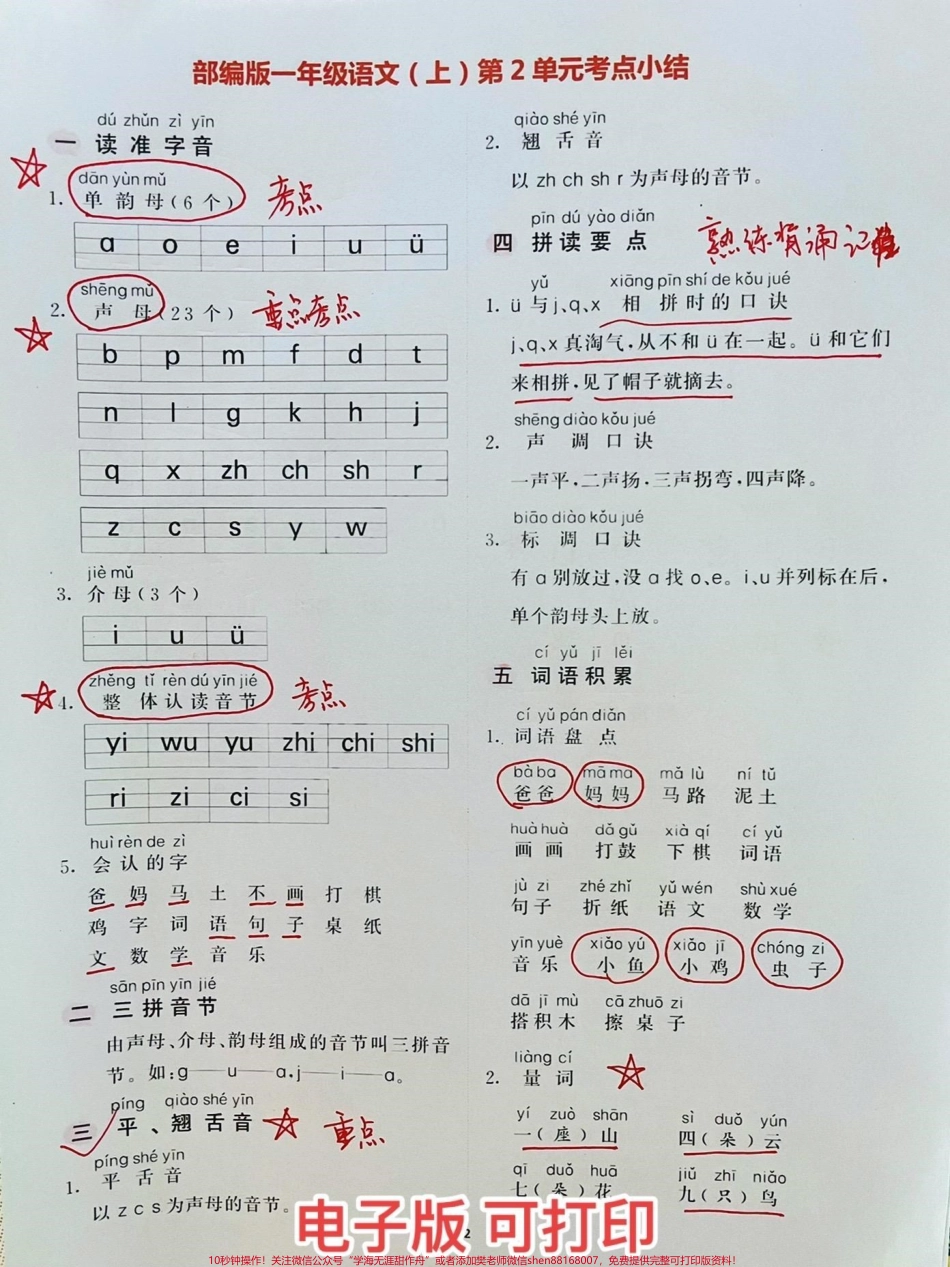 部编版一年级语文（上）第2单元考点小结
dú zhǔn zì yīn
一 读准字音
dān yùn mǔ
1. 单韵母(6个) 考点
ɑ o e i u ü
shēng mǔ
2. 声母(23个) 重点考点
b p m f d t
n l g k h j
q x zh ch sh r
z c s y w
jiè mǔ
3. 介母(3个)
i u ü
zhěng tǐ rèn dú yīn jié
4. 整体认读音节 考点
yi wu yu zhi chi shi
ri zi ci si
huì rèn de zì
5. 会认的字
爸 妈 马 土 不 画 打 棋
鸡 字 词 语 句 子 桌 纸
文 数 学 音 乐
sān pīn yīn jié
二 三拼音节
由声母、介母、韵母组成的音节叫三拼音
节。如:g——u——ɑ,j——i——ɑ。
píng qiào shé yīn
三 平、翘舌音 重点
píng shé yīn
1. 平舌音
以 z c s 为声母的音节。
qiào shé yīn
2. 翘舌音
以 zh ch sh r 为声母的音节。
pīn dú yào diǎn
四 拼读要点 熟练背诵记
yǔ xiāng pīn shí de kǒu jué
1. ü 与 j、q、x 相拼时的口诀
j、q、x 真淘气,从不和 ü 在一起。ü 和它们
来相拼,见了帽子就摘去。
shēng diào kǒu jué
2. 声调口诀
一声平,二声扬,三声拐弯,四声降。
biāo diào kǒu jué
3. 标调口诀
有 ɑ 别放过,没 ɑ 找 o、e。i、u 并列标在后,
单个韵母头上放。
cí yǔ jī lěi
五 词语积累
cí yǔ pán diǎn
1. 词语盘点
bà ba mā ma mǎ lù ní tǔ
爸爸 妈妈 马路 泥土
huà huà dǎ gǔ xià qí cí yǔ
画画 打鼓 下棋 词语
jù zi zhé zhǐ yǔ wén shù xué
句子 折纸 语文 数学
yīn yuè xiǎo yú xiǎo jī chóng zi
音乐 小鱼 小鸡 虫子
dā jī mù cā zhuō zi
搭积木 擦桌子
liàng cí
2. 量词
yí zuò shān sì duǒ yún
一(座)山 四(朵)云
qī duǒ huā jiǔ zhī niǎo
七(朵)花 九(只)鸟
电子版 可打印
2
10秒钟操作！关注微信公众号“学海无涯甜作舟”或者添加樊老师微信shen88168007，免费提供完整可打印版资料！